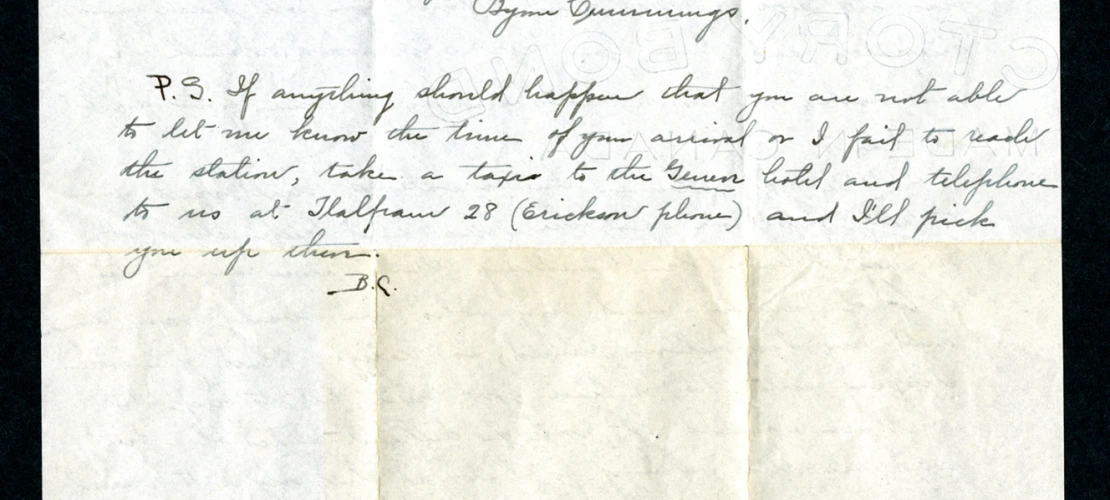 Byron Cummings.
CTORY BOND
P.S. If anything should happen that you are not able
to let me know the time of your arrival or I fail to reach
MADE IN CANADA
the station, take a taxi to the Genev hotel and telephone
to us at Tlalpam 28 (Erickson phone) and I'll pick
you up there.
B.C.